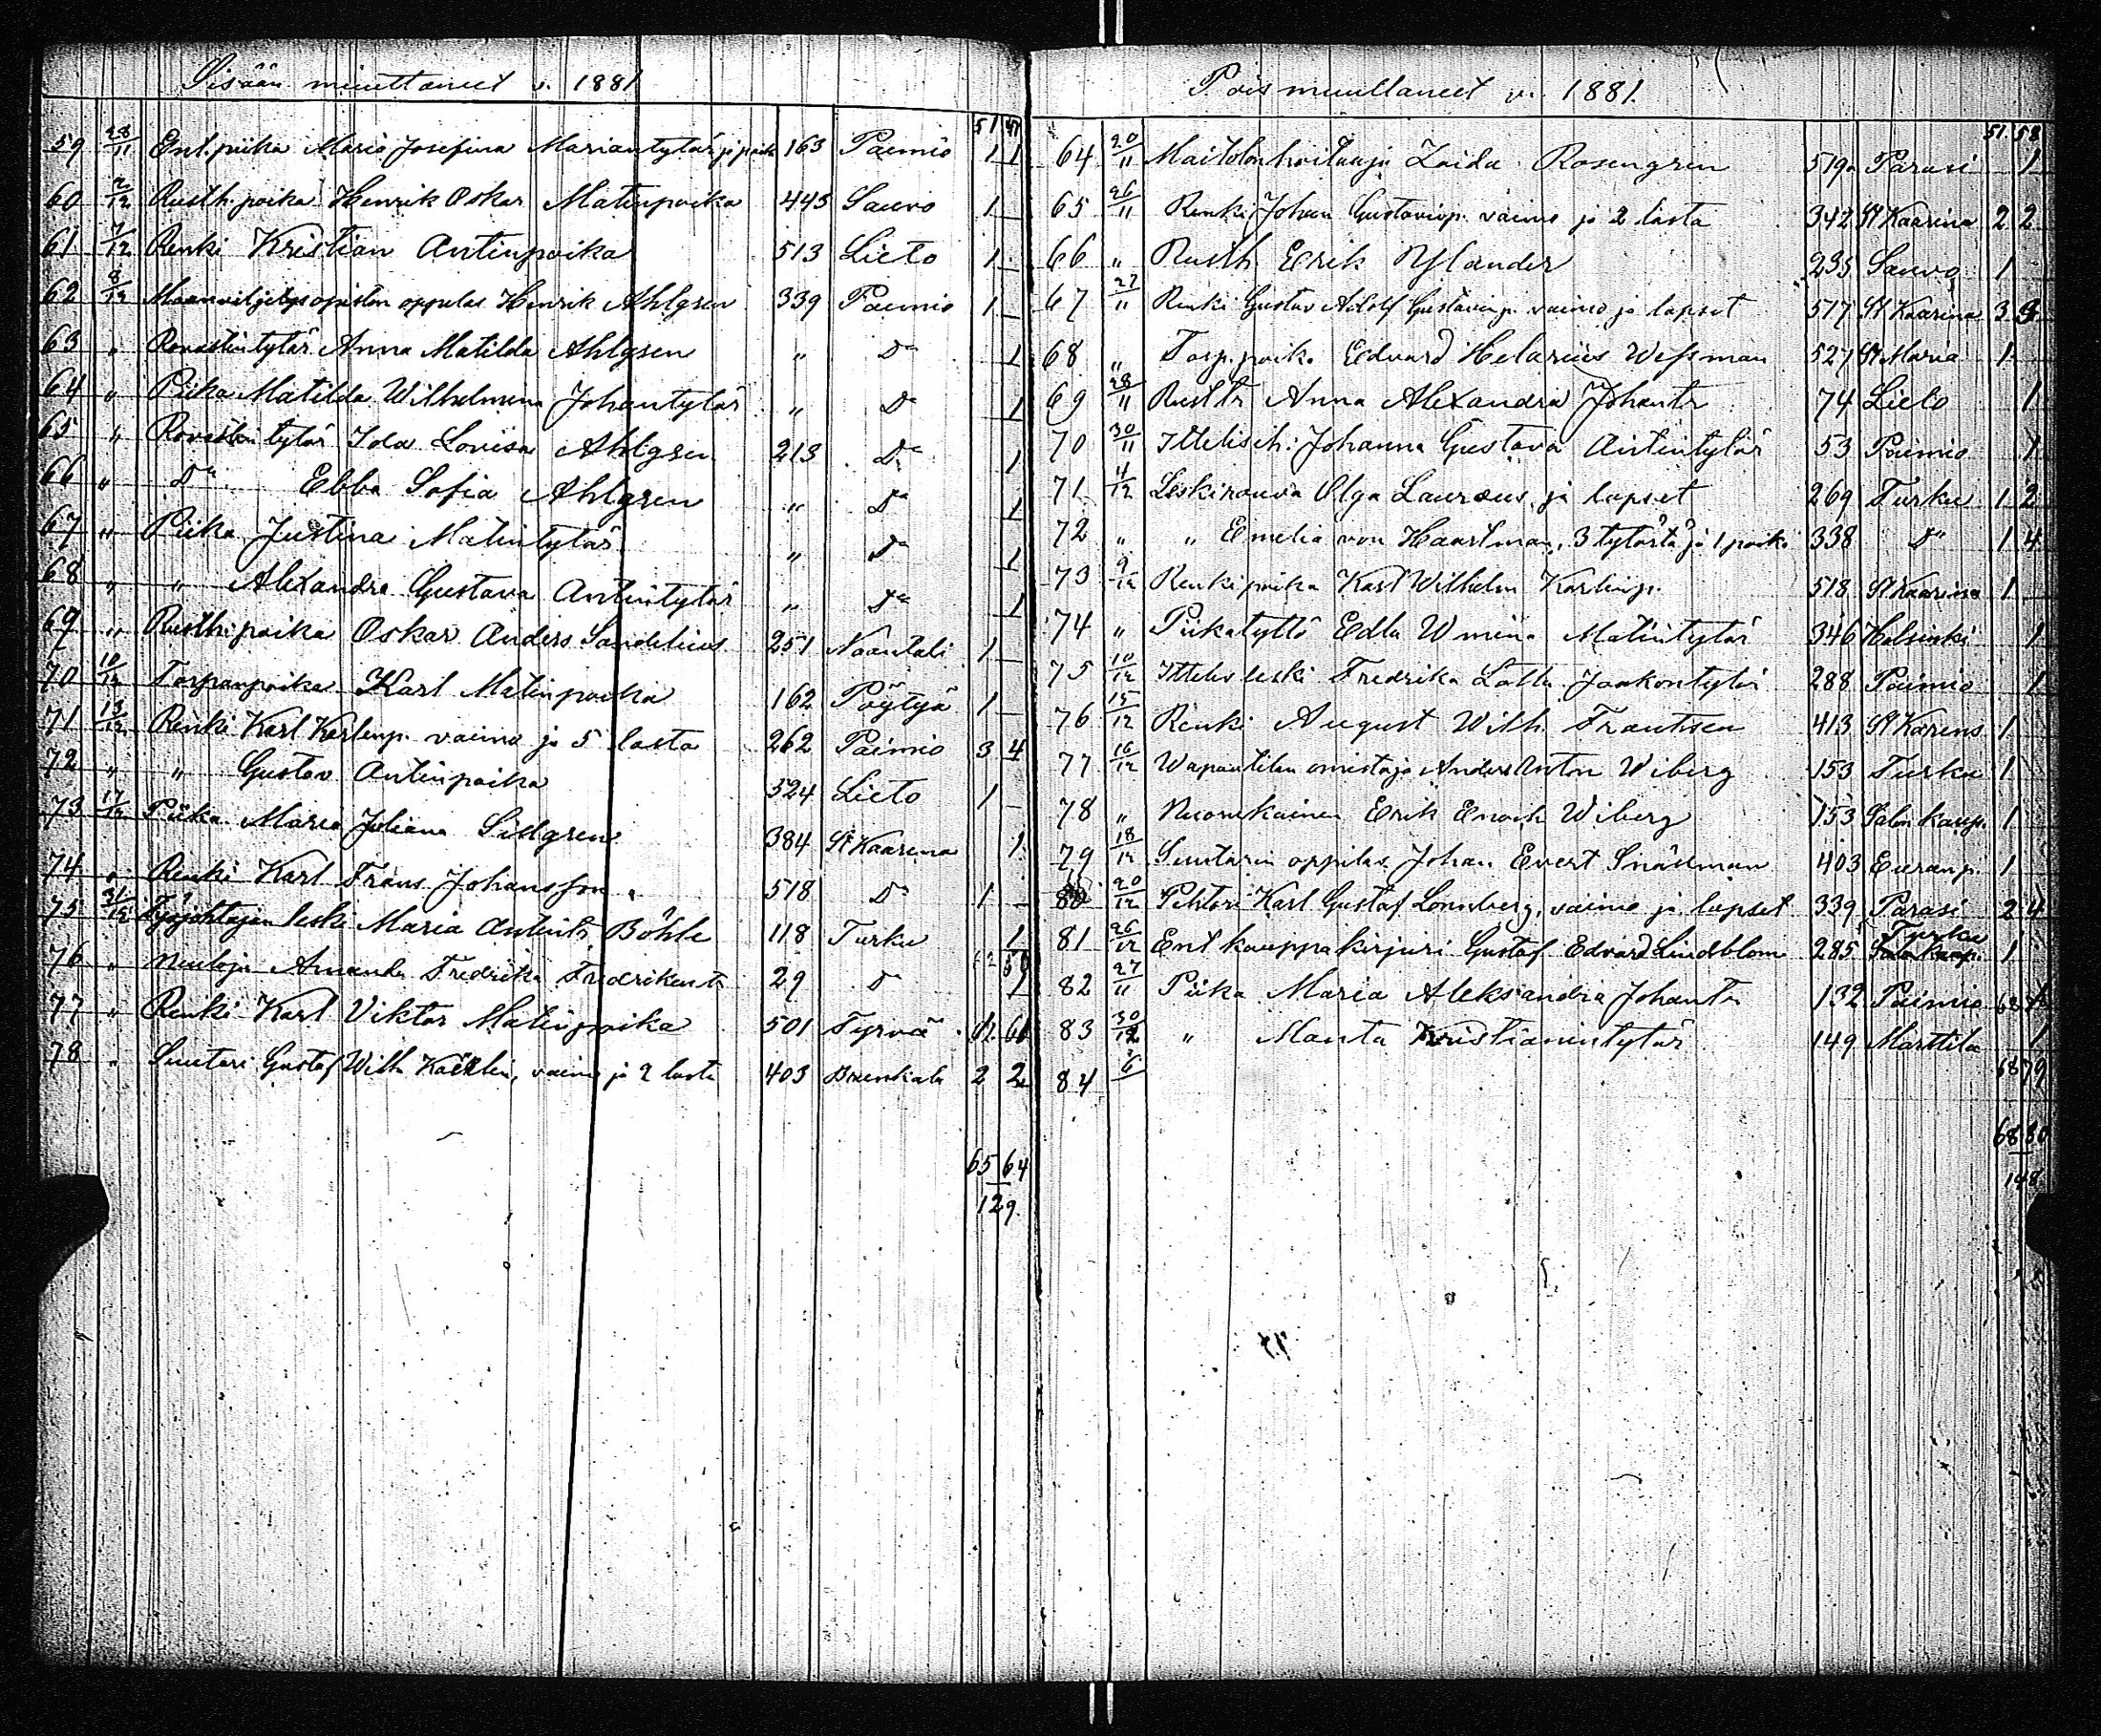 Sisään muuttaneet v. 1881
51 47
59 28/11 Ent. piika Maria Josefina Mariantytär ja poika 163 Paimio 1 1
60 2/12 Rusth. poika Henrik Oskar Matinpoika 445 Sauvo 1
61 7/12 Renki Kristian Antinpoika 513 Lieto 1
62 8/12 Maanviljelys opiston oppilas Henrik Ahlgren 339 Paimio 1
63 " Rovastin tytär Anna Matilda Ahlgren " Do 1
64 " Piika Matilda Wilhelmina Johantytär " Do 1
65 " Rovastin tytär Ida Lovisa Ahlgren 213 Do 1
66 " Do Ebba Sofia Ahlgren " Do 1
67 " Piika Justina Matintytär " Do 1
68 " " Alexandra Gustava Antintytär " Do 1
69 " Rusth. poika Oskar Anders Sandelius 251 Naantali 1
70 10/12 Torpanpoika Karl Matinpoika 162 Pöytyä 1
71 13/12 Renki Karl Karlinp. vaimo ja 5 lasta 262 Paimio 3 4
72 " " Gustav Antinpoika 324 Lieto 1
73 17/12 Piika Maria Juliana Sidgren 384 St Kaarina 1
74 " Renki Karl Frans Johansson 518 Do 1
75 31/12 Työjohtajan leski Maria Antintr Böhle 118 Turku 1
76 " Neuloja Amanda Fredrika Fredrikintr 29 Do 1
77 " Renki Karl Viktor Matinpoika 501 Tyrvää
78 " Suutari Gustaf Wilh. vaimo ja 2 lasta 403 2 2
65 64
129
Pois muuttaneet v. 1881.
51 58
64 20/11 Maitolonhoitaaja Zaida Rosengren 519a Parasi 1
65 26/11 Renki Johan Gustavinp. vaimo ja 2 lasta 342 St Kaarina 2 2
66 " Rusth. Erik Nylander 235 Sauvo 1
67 27/11 Renki Gustav Adolf Gustavinp. vaimo ja lapset 517 St Kaarina 3 3
68 " Torp. poika Edvard Helarius Wessman 527 St Maria 1
69 28/11 Rustr Anna Alexandra Johantr 74 Lieto 1
70 30/11 Ittelisch: Johanna Gustava Antintytär 53 Paimio 1
71 4/12 Leskirouva Olga Lauraeus ja lapset 269 Turku 1 2
72 " " Emelia von Haartman, 3 tytärtä ja 1 poika 338 Do 1 4
73 9/12 Renkipoika Karl Wilhelm Karlinp. 518 St Kaarina 1
74 " Piikatyttö Edla Wmina Matintytär 346 Helsinki 1
75 10/12 Ittelis leski Fredrika Lotta Jaakontytär 288 Paimio 1
76 15/12 Renki August Wilh. Frantsen 413 St Karens 1
77 16/12 Wapaatilan omistaja Anders Anton Wiberg 153 Turku 1
78 " Nuorukainen Erik Enoch Wiberg 153 Salon kaup. 1
79 18/12 Suutarin oppilas Johan Evert Snällman 403 Euranp. 1
80 20/12 Pehtori Karl Gustaf Lönnberg, vaimo ja lapset 339 Parasi 2 4
81 26/12 Ent kauppakirjuri Gustaf Edvard Lindblom 285 Turku 1
82 27/11 Piika Maria Aleksandra Johantr 132 Paimio
83 30/12 " Manta Kristianintytär 149 Marttila 1
68 79
84
68 80
148